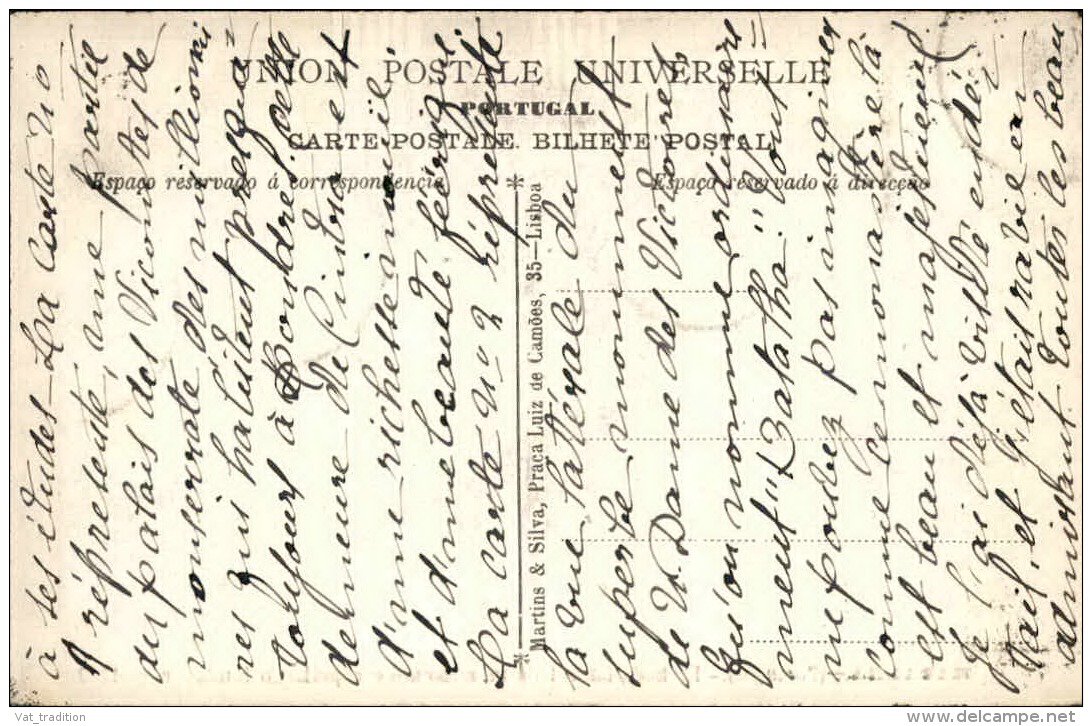 UNION POSTALE UNIVERSELLE
PORTUGAL
CARTE POSTALE. BILHETE POSTAL
Espaço reservado á correspondencia
Espaço reservado á direcção
Martins & Silva, Praça Luiz de Camões, 35—Lisboa
à ses études – La Carte No
1 réprésente, une partie
du palais des Vicomtes de
monserrate des millionnai-
res qui habitent presque
toujours à Londres, cette
demeure de Cintra et
d'une richesse inouïe
et d'une beauté féérique.
La carte No 2 réprésente
la vue latérale du
superbe monument
de N. Dame des Victores
qu'on nomme ordinaire-
ment "Batalha" Vous
ne pouvez pas imaginer
comme ce monastère là
est beau et majestueux!
Je l'ai déjà visité en dé-
tail, et j'étais ravie en
admirant toutes les beau
Vat_tradition
delcampe.net